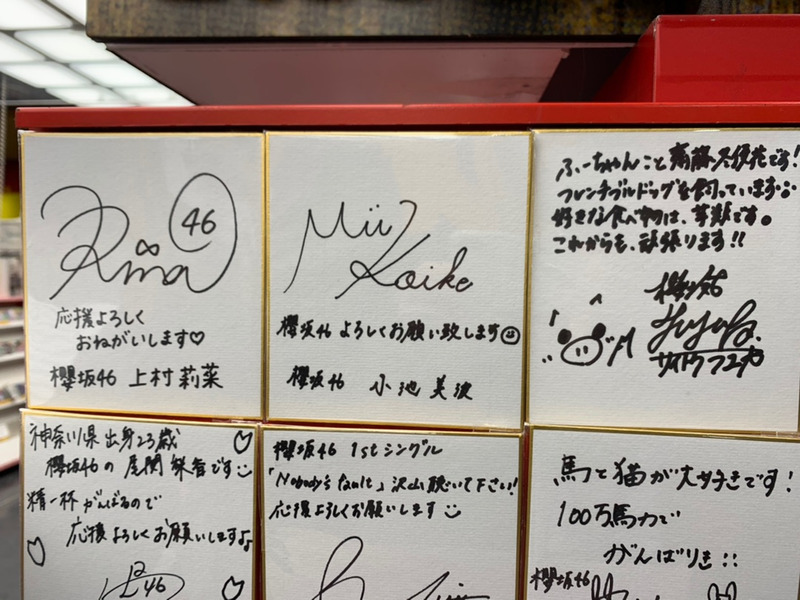 Rina
46
応援よろしく
おねがいします♡
櫻坂46 上村莉菜
Mii
Koike
櫻坂46 よろしくお願い致します
櫻坂46 小池美波
ふーちゃんこと齋藤冬優花です!
フレンチブルドッグを飼っています
好きな食べ物は、です。
これからも、頑張ります!!
櫻坂46
Fuyuka.
サイトウフユカ
神奈川県出身23歳
櫻坂46の尾関梨香です
精一杯がんばるので
応援よろしくお願いしますよ
46
櫻坂46 1stシングル
「Nobody's fault」沢山聴いて下さい!
応援よろしくお願いします
馬と猫が大好きです!
100万馬力で
がんばりき!!
櫻坂46